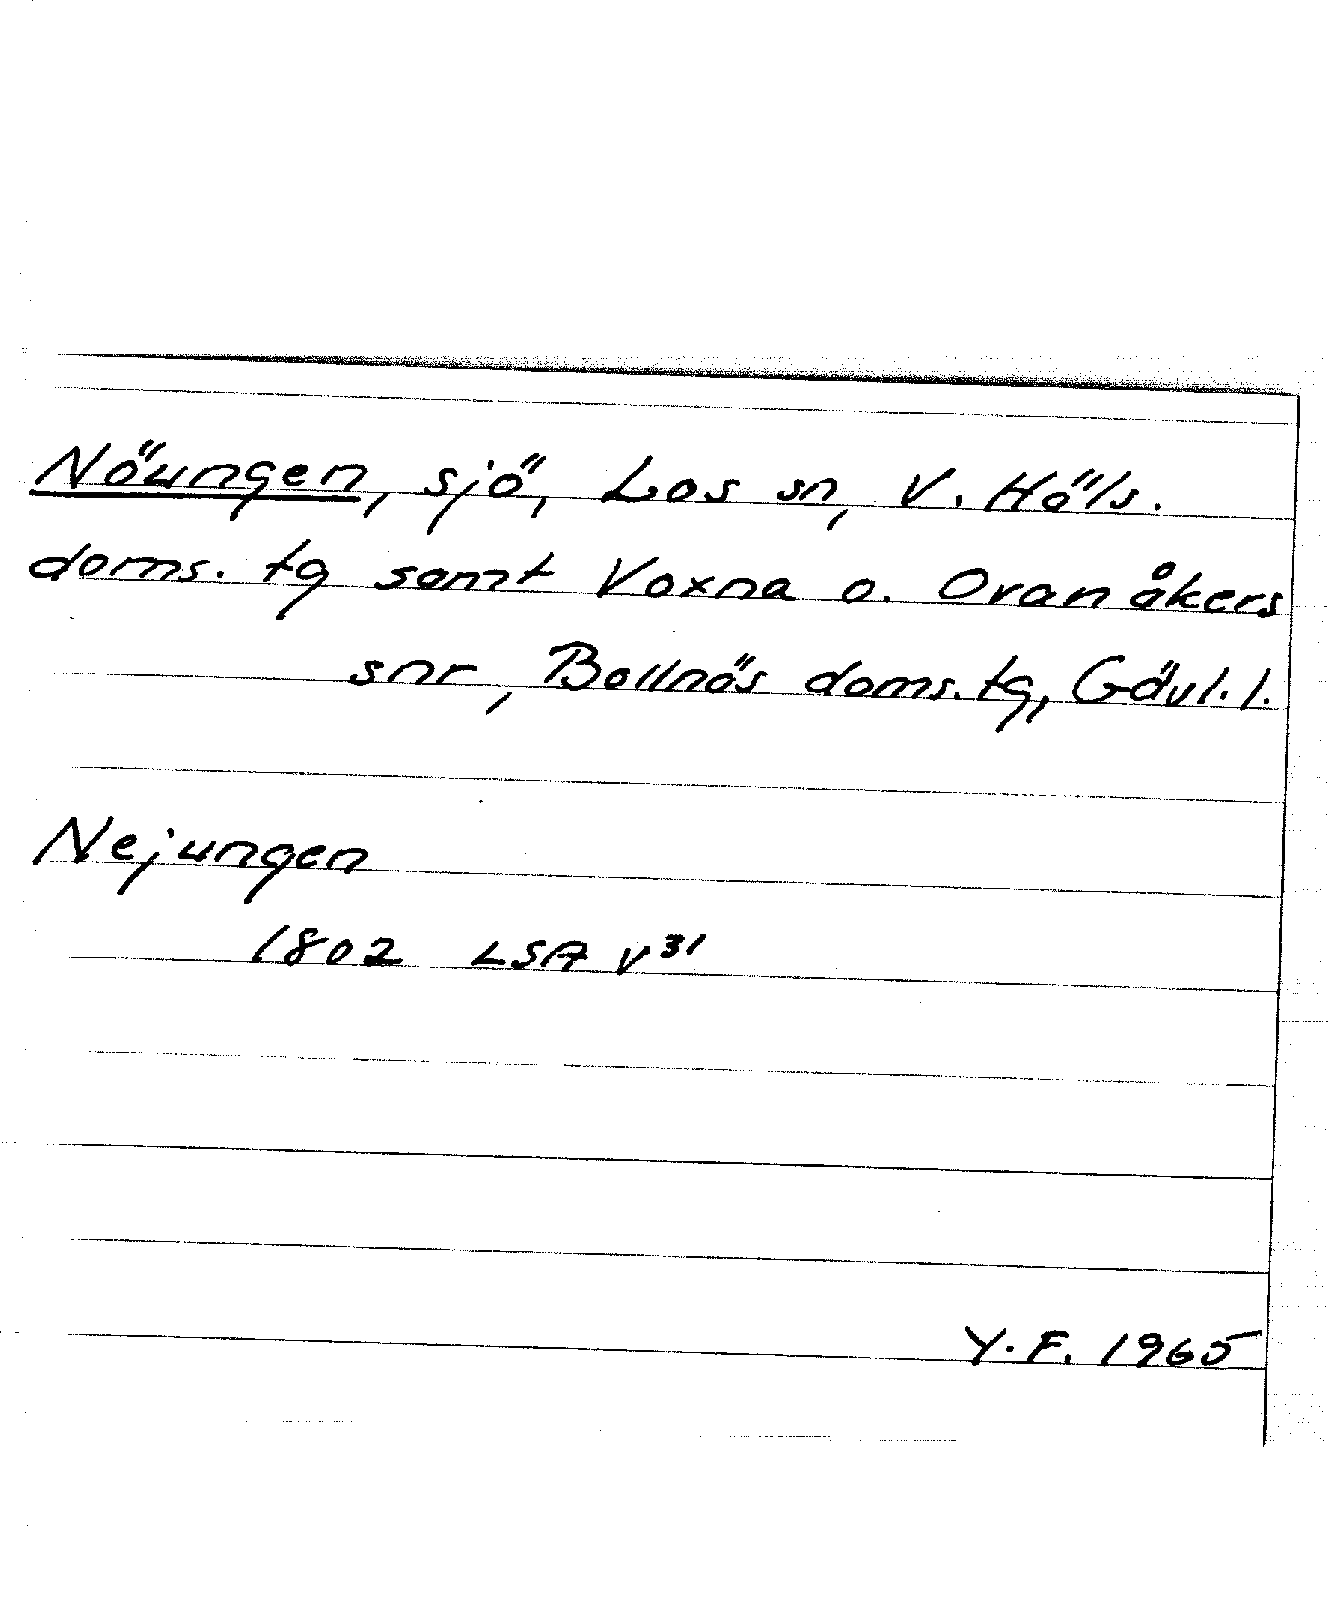 Näungen, sjö, Los sn, V. Häls.
doms. tg samt Voxna o. Ovanåkers
snr, Bollnäs doms. tg, Gävl. l.
Nejungen
1802 LSA V³¹
Y. F. 1965